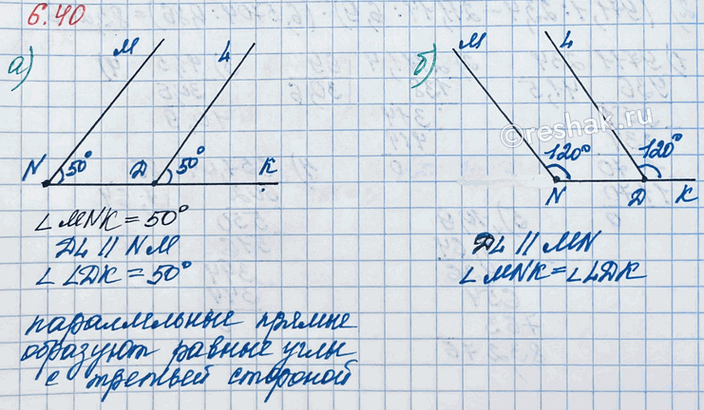 6.40
а) M L
N 50° D 50° K
∠MNK = 50°
DL || NM
∠LDK = 50°
параллельные прямые
образуют равные углы
с третьей стороной
б) M L
©reshak.ru
120° 120°
N D K
DL || MN
∠MNK = ∠LDK